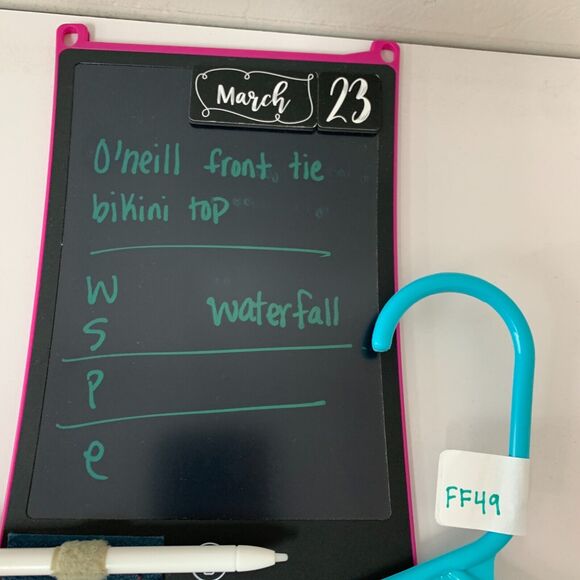 March 23
O'neill front tie
bikini top
W
waterfall
S
P
e
FF49